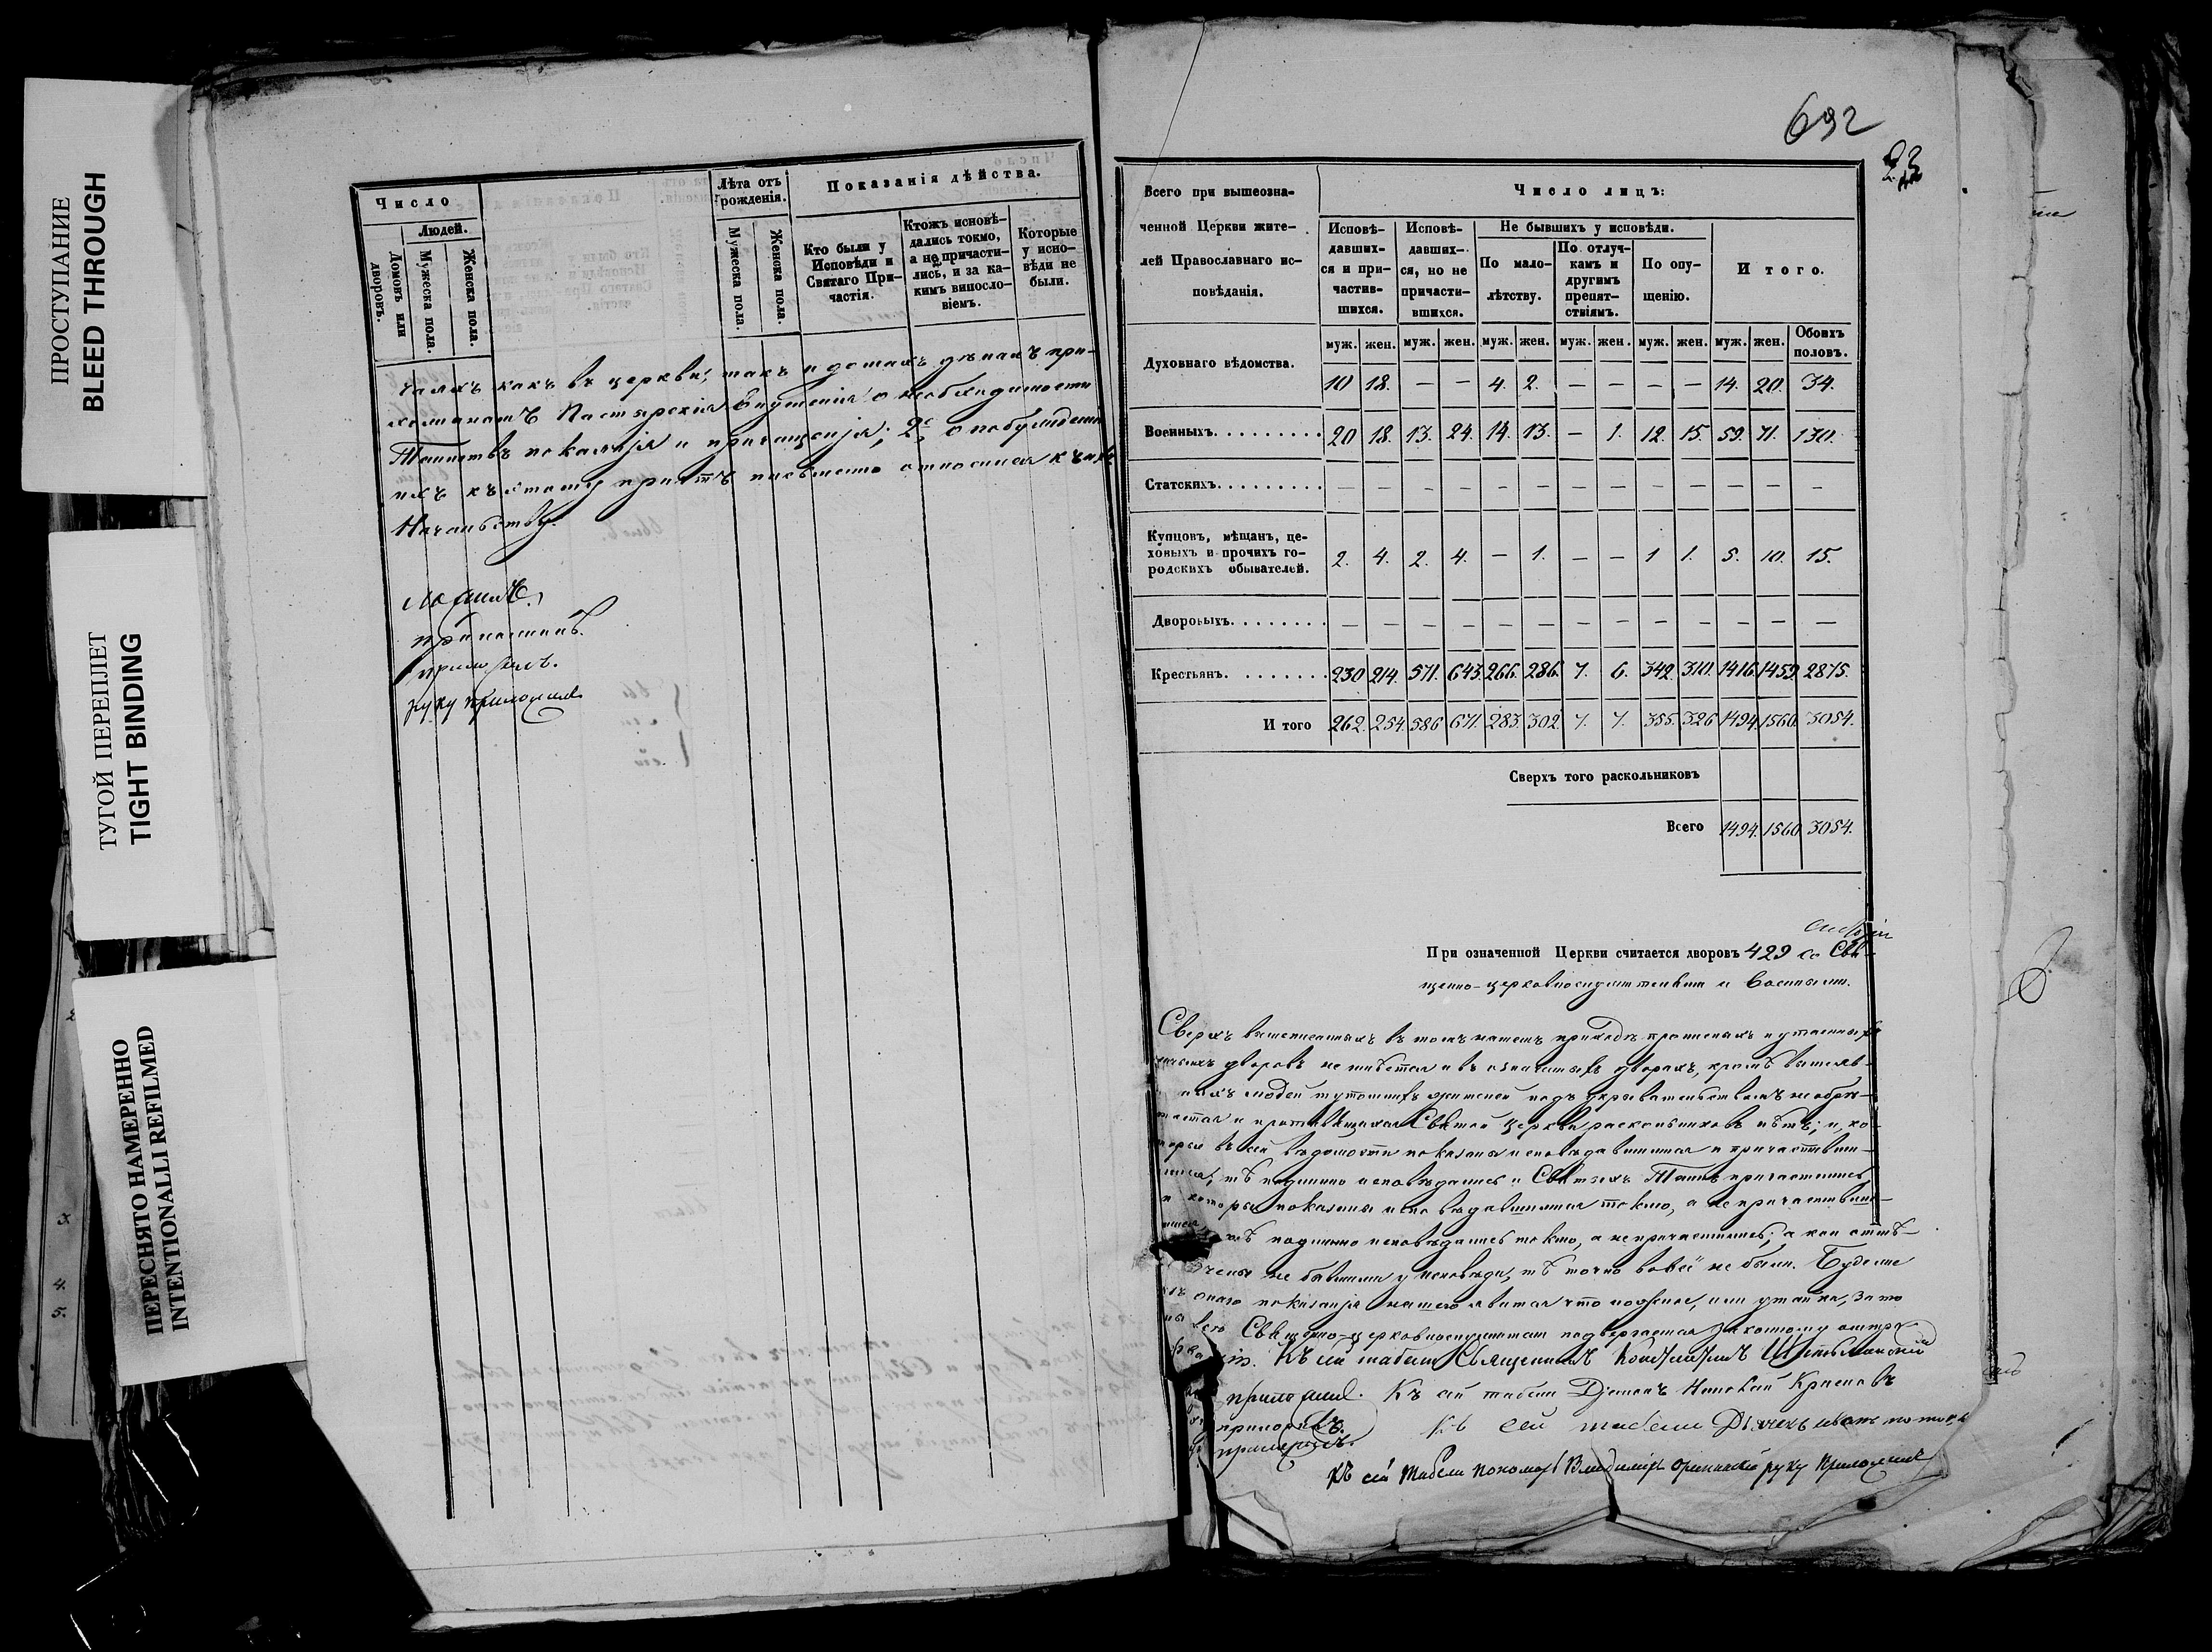 ПРОСТУПАНИЕ
BLEED THROUGH
ТУГОЙ ПЕРЕПЛЕТ
TIGHT BINDING
ПЕРЕСНЯТО НАМЕРЕННО
INTENTIONALLI REFILMED
Число
Людей.
Домовъ или дворовъ.
Мужеска пола.
Женска пола.
Лѣта отъ рожденія.
Мужеска пола.
Женска пола.
Показанія дѣйства.
Кто были у Исповѣди и Святаго Причастія.
Ктожъ исповѣ-
дались токмо,
а не причасти-
лись, и за ка-
кимъ винosло-
віемъ.
Которые
у испо-
вѣди не
были.
чаяхъ какъ въ церкви, такъ и домахъ дѣлалъ при-
хожанамъ Пастырскія внушенія о необходимости
Таинствъ покаянія и причащенія; 2е, о побужденіи
ихъ къ этому причтъ письменно относился къ ихъ
Начальству.
приложилъ.
руку приложилъ
692
23
Всего при вышеозна-
ченной Церкви жите-
лей Православнаго ис-
повѣданія.
Число лицъ:
Исповѣ-
давших-
ся и при-
частив-
шихся.
Исповѣ-
давших-
ся, но не
причасти-
вшихся.
Не бывшихъ у исповѣди.
По мало-
лѣтству.
По отлуч-
камъ и
другимъ
препят-
ствіямъ.
По опу-
щенію.
И того.
муж. жен. муж. жен. муж. жен. муж. жен. муж. жен. муж. жен. Обоихъ половъ.
Духовнаго вѣдомства. 10 18. — — 4. 2. — — — — 14. 20. 34.
Военныхъ. 20 18. 13. 24. 14. 13. — 1. 12. 15. 59. 71. 130.
Статскихъ. — — — — — — — — — — — — —
Купцовъ, мѣщанъ, це-
ховыхъ и прочихъ го-
родскихъ обывателей. 2. 4. 2. 4. — 1. — — 1 1. 5. 10. 15.
Дворовыхъ. — — — — — — — — — — — — —
Крестьянъ. 230 214. 571. 643. 266. 286. 7. 6. 342. 310. 1416. 1459. 2875.
И того 262. 254. 586 671. 283. 302. 7. 7. 355. 326 1494. 1560. 3054.
Сверхъ того раскольниковъ
Всего 1494. 1560 3054.
При означенной Церкви считается дворовъ 429 со Свя-
щенно-церковнослужительскими и военными.
Сверхъ вышеписанныхъ въ томъ нашемъ приходѣ прописныхъ и утаенныхъ
дворовъ не имѣется и въ означенныхъ дворахъ, кромѣ вышеяв-
людей тутошнихъ жителей подъ укрывательствомъ не обрѣ-
тается и противящихся Святой Церкви раскольниковъ нѣтъ; и, ко-
торые въ сей вѣдомости показаны исповѣдавшимися и причастивши-
мися, тѣ подлинно исповѣдались и Святыхъ Таинъ причастились
и которые показаны исповѣдавшимися токмо, а не причастивши-
тѣ подлинно исповѣдались токмо, а не причастились; а кои отмѣ-
чены не бывшими у исповѣди, тѣ точно вовсе не были. Буде же
онаго показанія нашего явится что ложное, или утайка, за то
Священно-церковнослужители подвергается законному
Къ сей табели Священникъ Константинъ
приложилъ. Къ сей табели Діаконъ Николай
приложилъ. Къ сей табели Дьячекъ
къ сей табели пономарь Владиміръ руку приложилъ